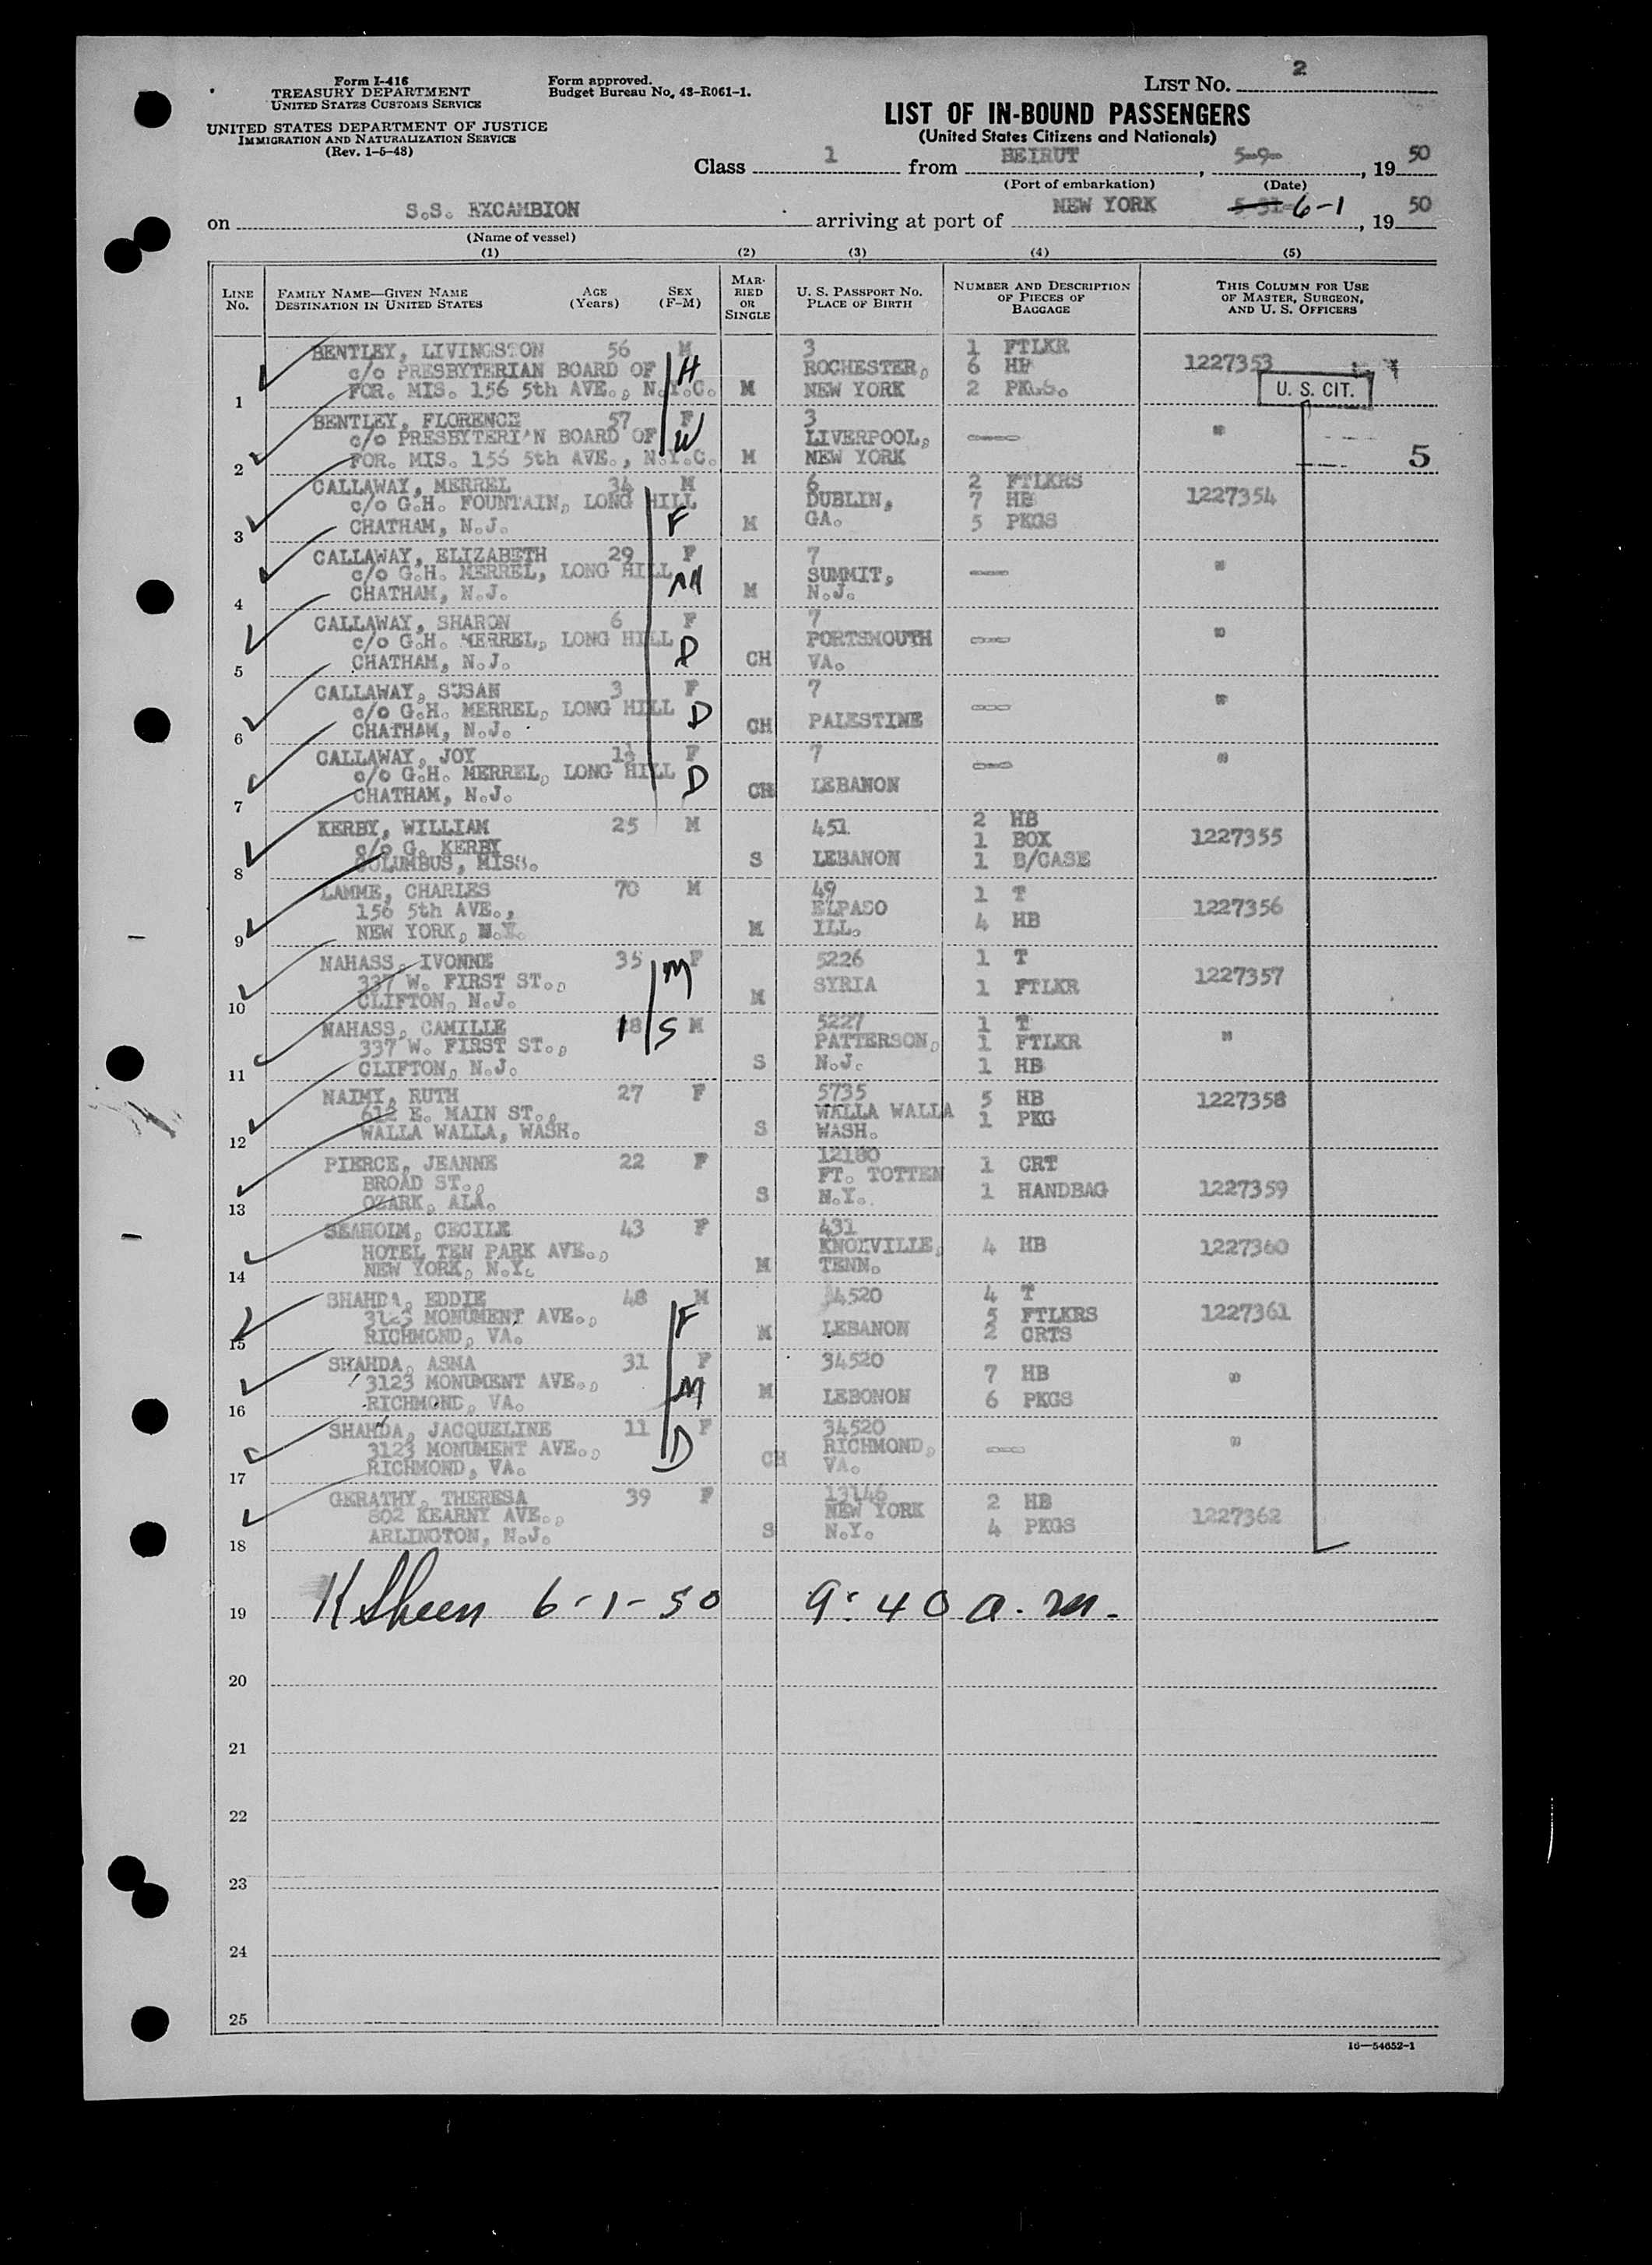 Form I-416
TREASURY DEPARTMENT
UNITED STATES CUSTOMS SERVICE
UNITED STATES DEPARTMENT OF JUSTICE
IMMIGRATION AND NATURALIZATION SERVICE
(Rev. 1-5-48)
Form approved.
Budget Bureau No. 43-R061-1.
LIST No. 2
LIST OF IN-BOUND PASSENGERS
(United States Citizens and Nationals)
Class 1 from BEIRUT, 5-9-, 1950
(Port of embarkation) (Date)
on S.S. EXCAMBION arriving at port of NEW YORK 5-31- 6-1, 1950
(Name of vessel)
(1) (2) (3) (4) (5)
LINE No. FAMILY NAME—GIVEN NAME DESTINATION IN UNITED STATES AGE (Years) SEX (F-M) MARRIED OR SINGLE U. S. PASSPORT No. PLACE OF BIRTH NUMBER AND DESCRIPTION OF PIECES OF BAGGAGE THIS COLUMN FOR USE OF MASTER, SURGEON, AND U. S. OFFICERS
BENTLEY, LIVINGSTON 56 M 3 1 FTLKR
c/o PRESBYTERIAN BOARD OF H ROCHESTER, 6 HB 1227353
1 FOR. MIS. 156 5th AVE., N.Y.C. M NEW YORK 2 PKGS. U. S. CIT.
BENTLEY, FLORENCE 57 F 3
c/o PRESBYTERI'N BOARD OF W LIVERPOOL, --- "
2 FOR. MIS. 156 5th AVE., N.Y.C. M NEW YORK 5
CALLAWAY, MERREL 34 M 6 2 FTLKRS
c/o G.H. FOUNTAIN, LONG HILL DUBLIN, 7 HB 1227354
3 CHATHAM, N.J. F M GA. 5 PKGS
CALLAWAY, ELIZABETH 29 F 7
c/o G.H. MERREL, LONG HILL M SUMMIT, --- "
4 CHATHAM, N.J. M N.J.
CALLAWAY, SHARON 6 F 7
c/o G.H. MERREL, LONG HILL D PORTSMOUTH --- "
5 CHATHAM, N.J. CH VA.
CALLAWAY, SUSAN 3 F 7
c/o G.H. MERREL, LONG HILL D --- "
6 CHATHAM, N.J. CH PALESTINE
CALLAWAY, JOY 1½ F 7
c/o G.H. MERREL, LONG HILL D --- "
7 CHATHAM, N.J. CH LEBANON
KERBY, WILLIAM 25 M 451 2 HB
c/o G. KERBY 1 BOX 1227355
8 COLUMBUS, MISS. S LEBANON 1 B/CASE
LAMME, CHARLES 70 M 49 1 T
156 5th AVE., ELPASO 1227356
9 NEW YORK, N.Y. M ILL. 4 HB
NAHASS, IVONNE 35 F M 5226 1 T
337 W. FIRST ST., SYRIA 1 FTLKR 1227357
10 CLIFTON, N.J. M
NAHASS, CAMILLE 18 S M 5227 1 T
337 W. FIRST ST., PATTERSON, 1 FTLKR "
11 CLIFTON, N.J. S N.J. 1 HB
NAIMY, RUTH 27 F 5735 5 HB 1227358
612 E. MAIN ST., WALLA WALLA 1 PKG
12 WALLA WALLA, WASH. S WASH.
PIERCE, JEANNE 22 F 12180 1 CRT
BROAD ST., FT. TOTTEN
13 OZARK, ALA. S N.Y. 1 HANDBAG 1227359
SEAHOIM, CECILE 43 F 431
HOTEL TEN PARK AVE., KNOXVILLE, 4 HB 1227360
14 NEW YORK, N.Y. M TENN.
SHAHDA, EDDIE 48 M 34520 4 T
3123 MONUMENT AVE., F 5 FTLKRS 1227361
15 RICHMOND, VA. M LEBANON 2 CRTS
SHAHDA, ASMA 31 F 34520
3123 MONUMENT AVE., M 7 HB "
16 RICHMOND, VA. M LEBONON 6 PKGS
SHAHDA, JACQUELINE 11 F 34520
3123 MONUMENT AVE., D RICHMOND, --- "
17 RICHMOND, VA. CH VA.
GERATHY, THERESA 39 F 13146 2 HB
802 KEARNY AVE., NEW YORK 1227362
18 ARLINGTON, N.J. S N.Y. 4 PKGS
19 K Sheen 6-1-50 9:40 a.m.
20
21
22
23
24
25
16—54652-1